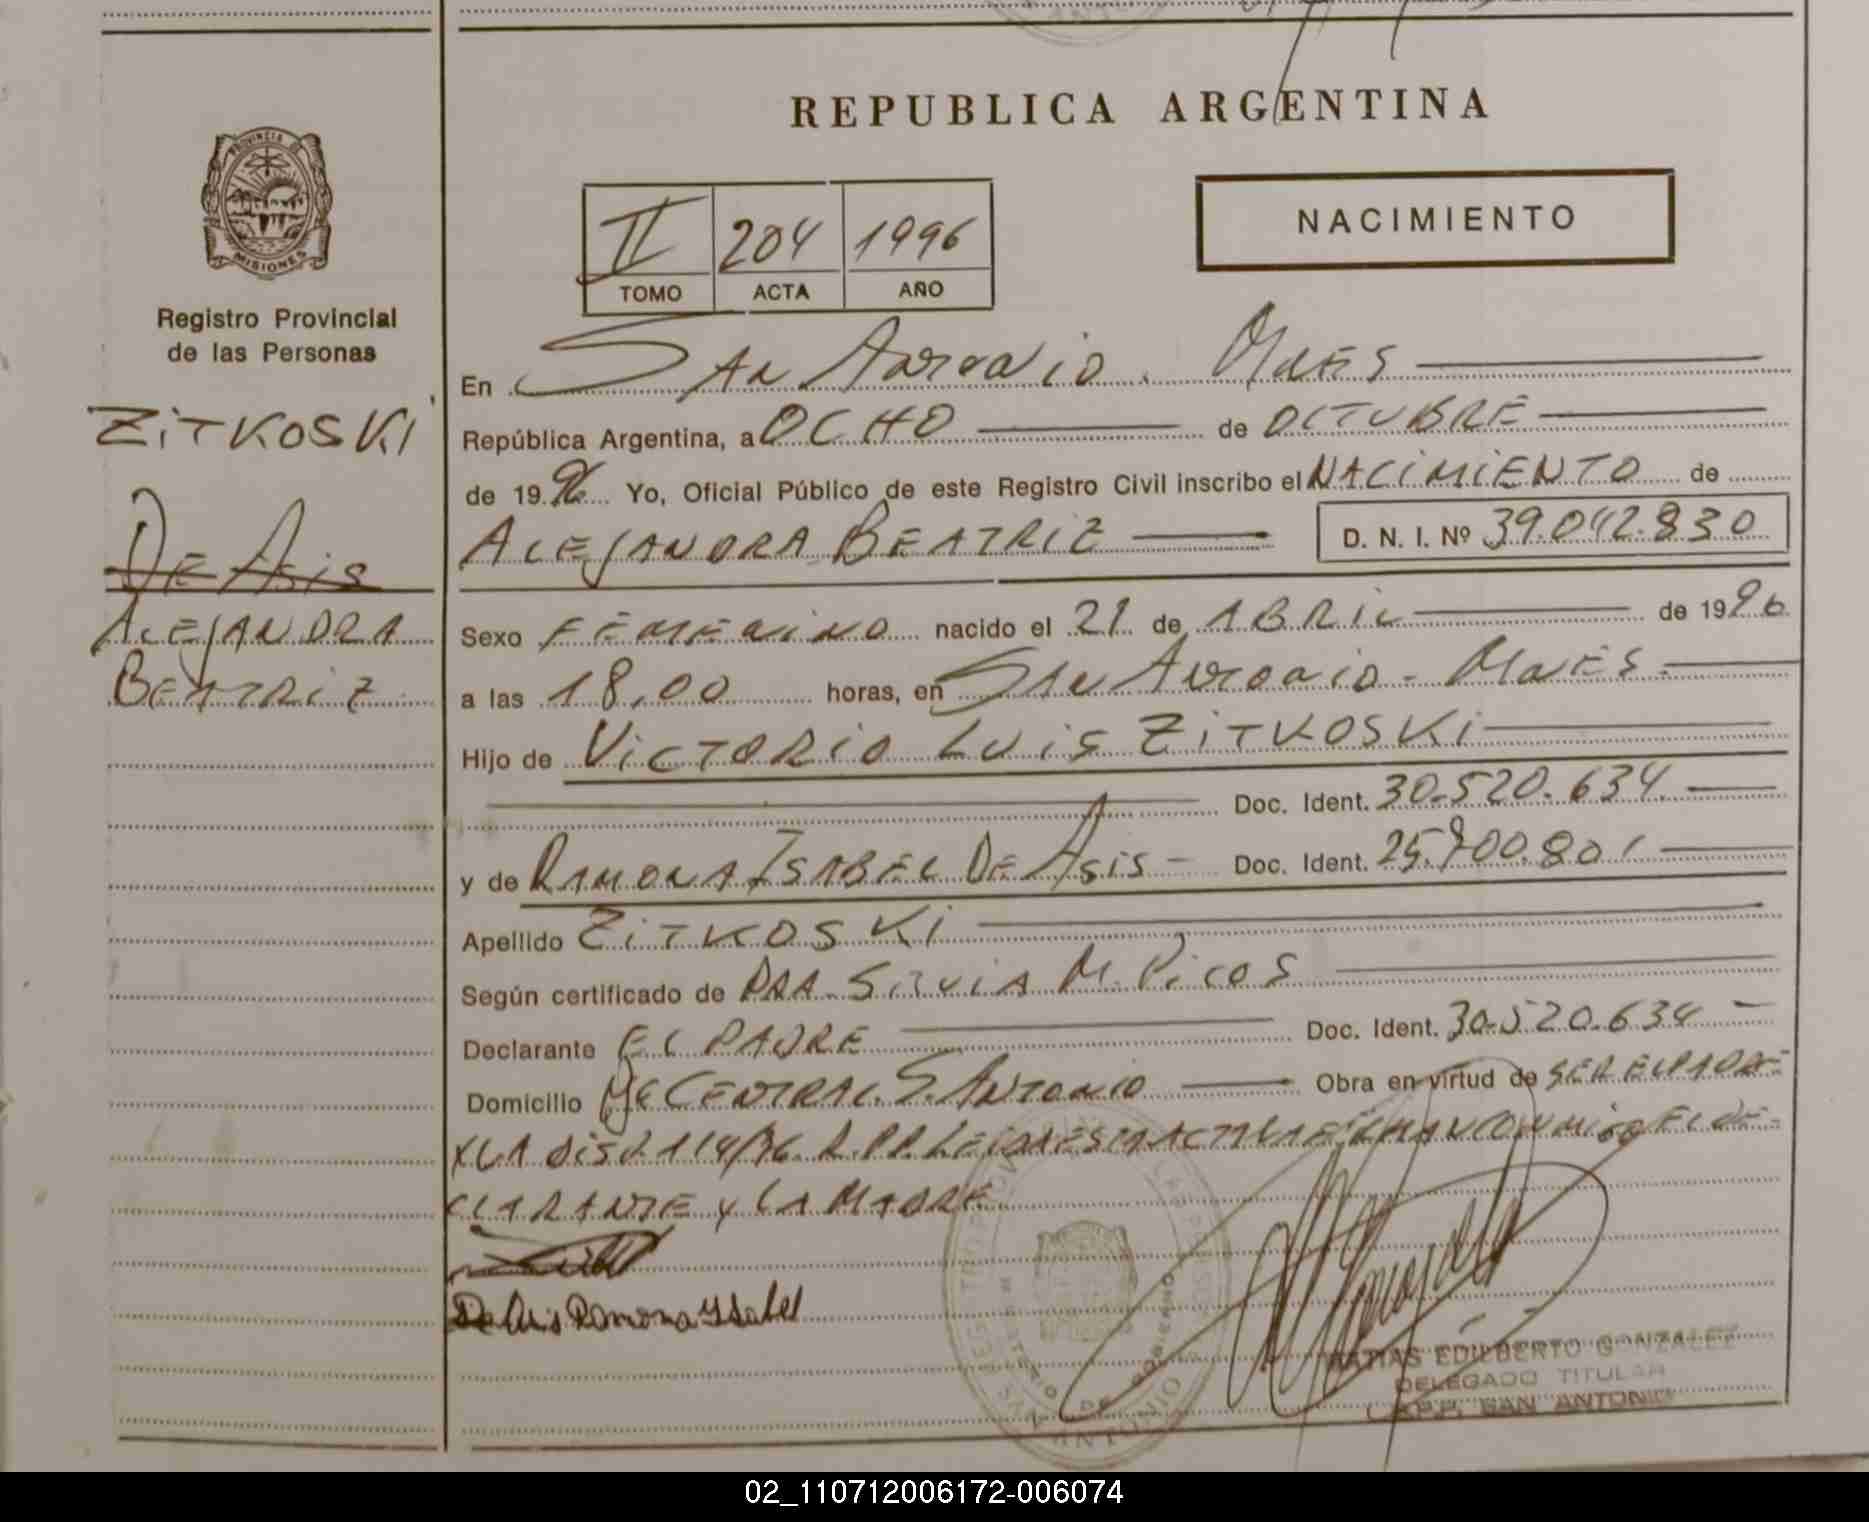 REPUBLICA ARGENTINA
PROVINCIA DE
MISIONES
II 204 1996
TOMO ACTA AÑO
NACIMIENTO
Registro Provincial
de las Personas
ZiTKOSKi
De Asis
ALEJANDRA
BEATRIZ
En SAN ANTONIO. MNES
República Argentina, a OCHO de OCTUBRE
de 1996 Yo, Oficial Público de este Registro Civil inscribo el NACIMIENTO de
ALEJANDRA BEATRIZ D. N. I. Nº 39.042.830
Sexo FEMENINO nacido el 21 de ABRIL de 1996
a las 18,00 horas, en SAN ANTONIO - MNES.
Hijo de VICTORIO LUIS ZiTKOSKi
Doc. Ident. 30.520.634
y de RAMONA ISABEL DE ASIS Doc. Ident. 25.900.801
Apellido ZiTKOSKi
Según certificado de DRA. SILVIA M. PICOS
Declarante EL PADRE Doc. Ident. 30.520.634
Domicilio Mc CENTRAL. S. ANTONIO Obra en virtud de SER EL PADRE
X LA DISP. 114/96. R.P.P. LEIDA ESTA ACTA LA FIRMAN CONMIGO EL DE-
CLARANTE y LA MADRE.
De Asis Ramona Ysabel
MATIAS EDILBERTO GONZALEZ
DELEGADO TITULAR
SAN ANTONIO
02_110712006172-006074